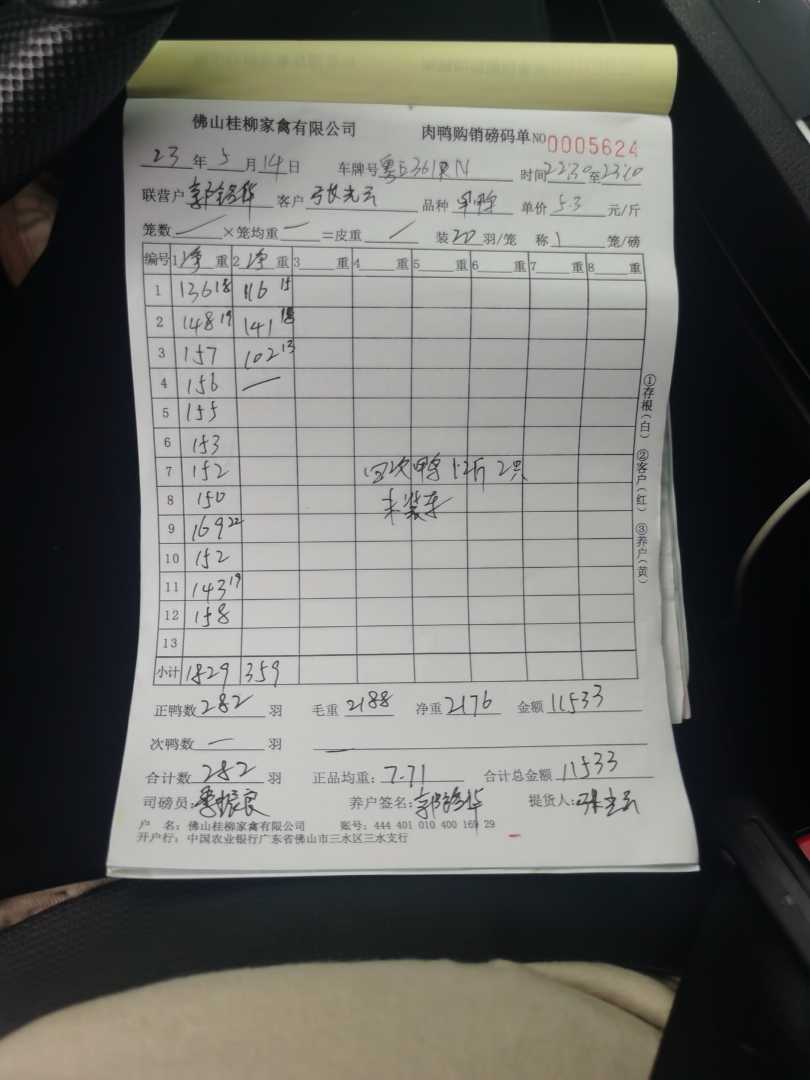 佛山桂柳家禽有限公司 肉鸭购销磅码单 NO 0005624
23 年 5 月 14 日 车牌号 粤E361RN 时间 22:30 至 23:10
联营户 客户 品种 单价 5.3 元/斤
笼数 / ×笼均重 — =皮重 / 装 20 羽/笼 称 1 笼/磅
编号 1 净 重 2 净 重 3 重 4 重 5 重 6 重 7 重 8 重
1 136 18 116 15
2 148 19 141 18
3 157 102 13
4 156 —
5 155
6 153
7 152 回次鸭 12斤 2只
8 150 未装车
9 169 22
10 152
11 143 19
12 158
13
小计 1829 359
正鸭数 282 羽 毛重 2188 净重 2176 金额 11533
次鸭数 — 羽 —
合计数 282 羽 正品均重: 7.71 合计总金额 11533
司磅员: 养户签名: 提货人:
户 名: 佛山桂柳家禽有限公司 账号: 444 401 010 400 169 29
开户行: 中国农业银行广东省佛山市三水区三水支行
①存根(白) ②客户(红) ③养户(黄)